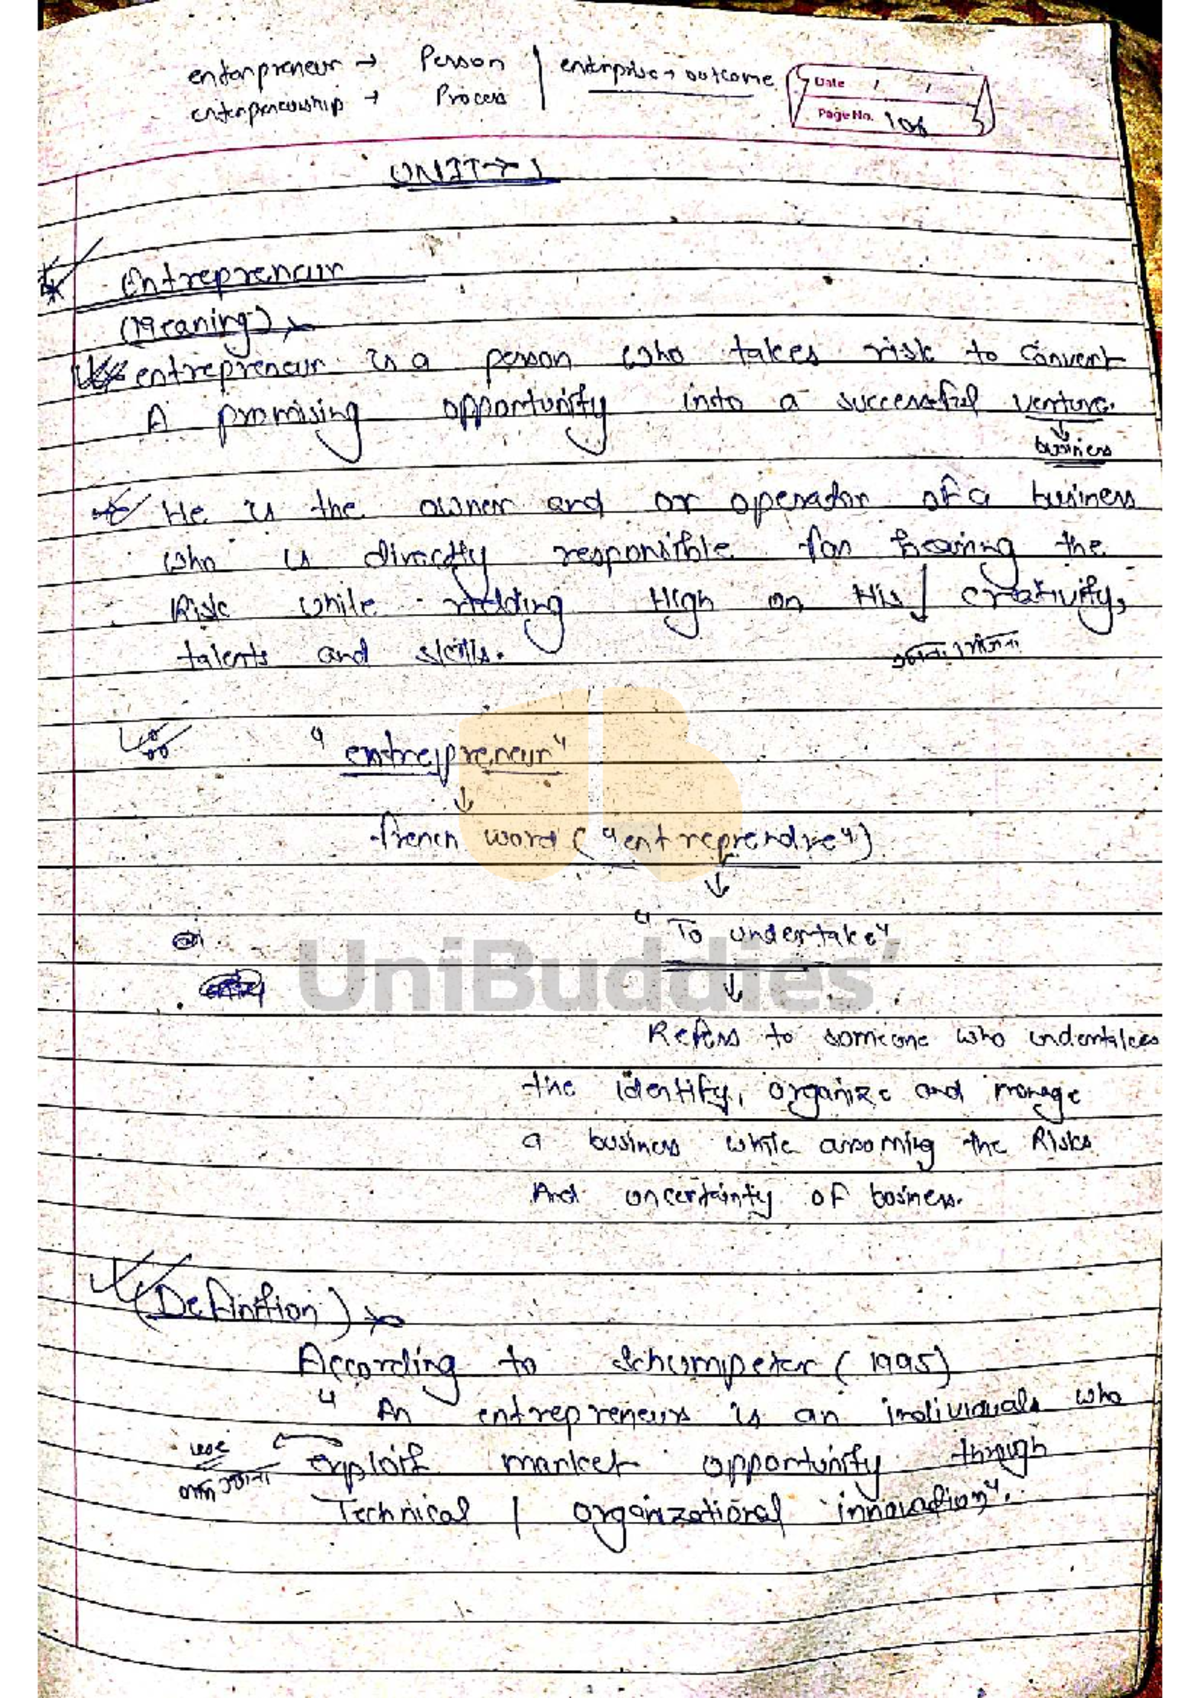 entanpreneur → Person | enterprise → outcome
enterpreneurship → Process
Date / /
Page No.
UNIT → 1
Entrepreneur
(Meaning)
entrepreneur is a person who takes risk to convert
A promising opportunity into a successful venture.
business
He is the owner and or operator of a business
who is directly responsible for bearing the
Risk while ridding High on His creativity,
talents and skills.
"entrepreneur"
french word ("entreprendre")
"To undertake"
UniBuddies'
Refers to someone who undertakes
the identify, organize and manage
a business while assoming the Risks
And uncertainty of business.
(Definition)
According to Schumpeter (1995)
"An entrepreneurs is an individuals who
use
exploit market opportunity through
Technical / organizational innovation".